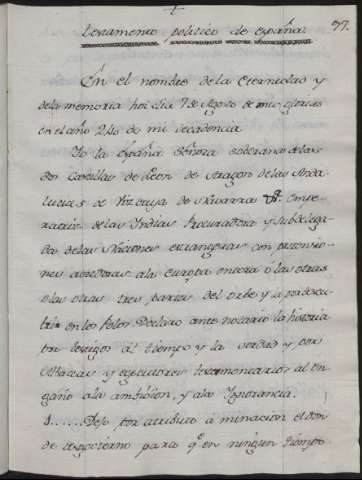 +
97.
testamento politico de españa
En el nombre de la Eternidad y
de la memoria hoi dia 7 de Agosto de mis glorias
en el año 246 de mi decadencia
Yo la España Señora soberana de las
dos Castillas de Leon de Aragon de las Anda
lucias de Vizcaya de Navarra &ª. Empe
ratriz de las Indias Procuradora y subdelega
da de las Naciones extrangeras con extensio
nes a la europa entera ô las otras
o las otras tres partes del Orbe y
en los Polos. Declaro ante notario la historia
por testigos al tiempo y la verdad y por
Albaceas y executores testamentarios al en
gaño a la ambision, y a la Ignorancia.
1....... Dejo por atributo â mi nacion el don
de desgobierno para qᵉ en ningun tiempo